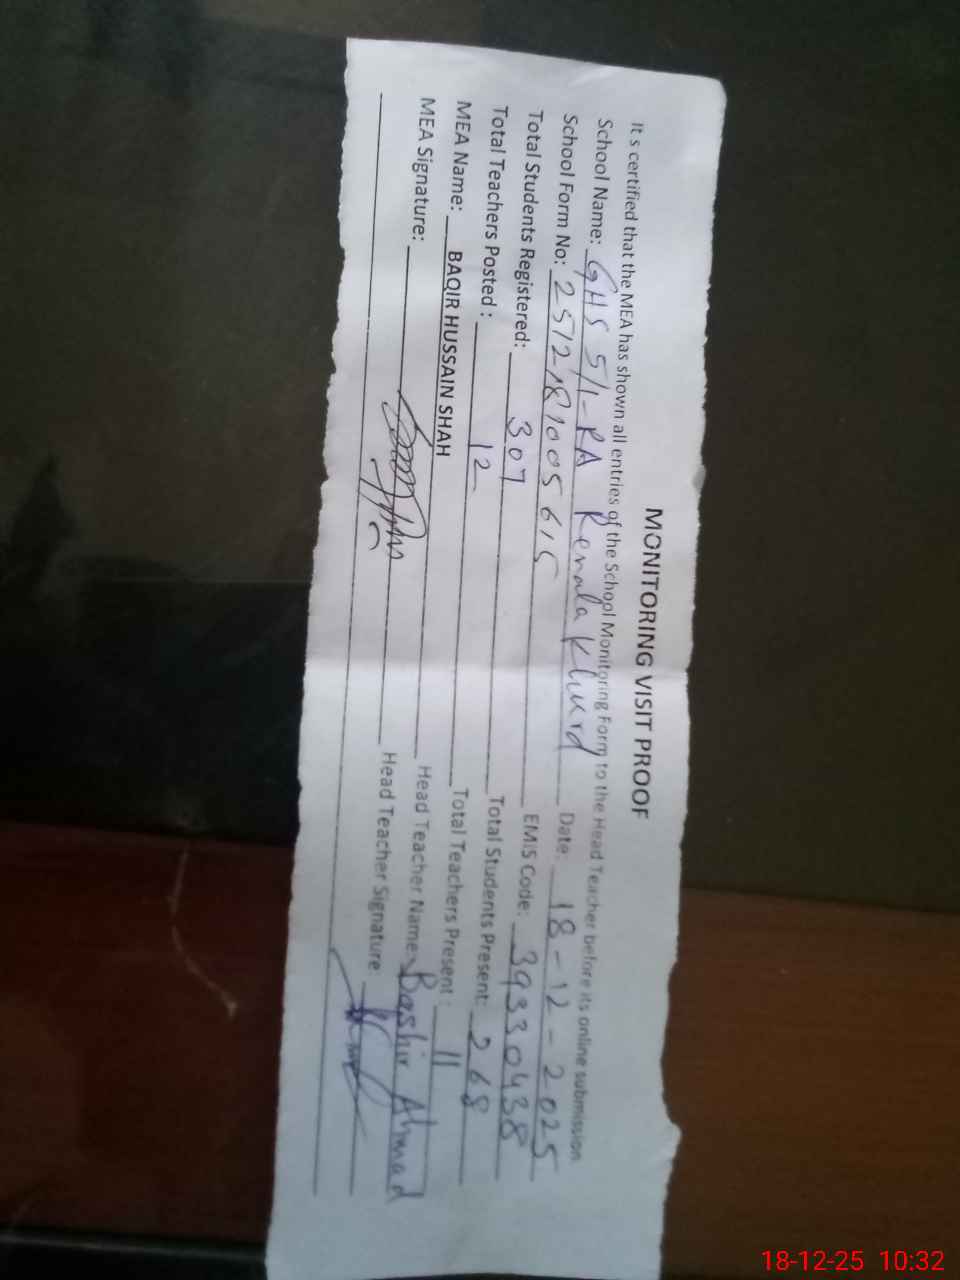 MONITORING VISIT PROOF
It s certified that the MEA has shown all entries of the School Monitoring Form to the Head Teacher before its online submission
School Name: GHS 5/1-RA Renala Khurd Date: 18-12-2025
School Form No: 2512181005615 EMIS Code: 39330438
Total Students Registered: 307 Total Students Present: 268
Total Teachers Posted : 12 Total Teachers Present : 11
MEA Name: BAQIR HUSSAIN SHAH Head Teacher Name: Bashir Ahmad
MEA Signature: Head Teacher Signature:
18-12-25 10:32